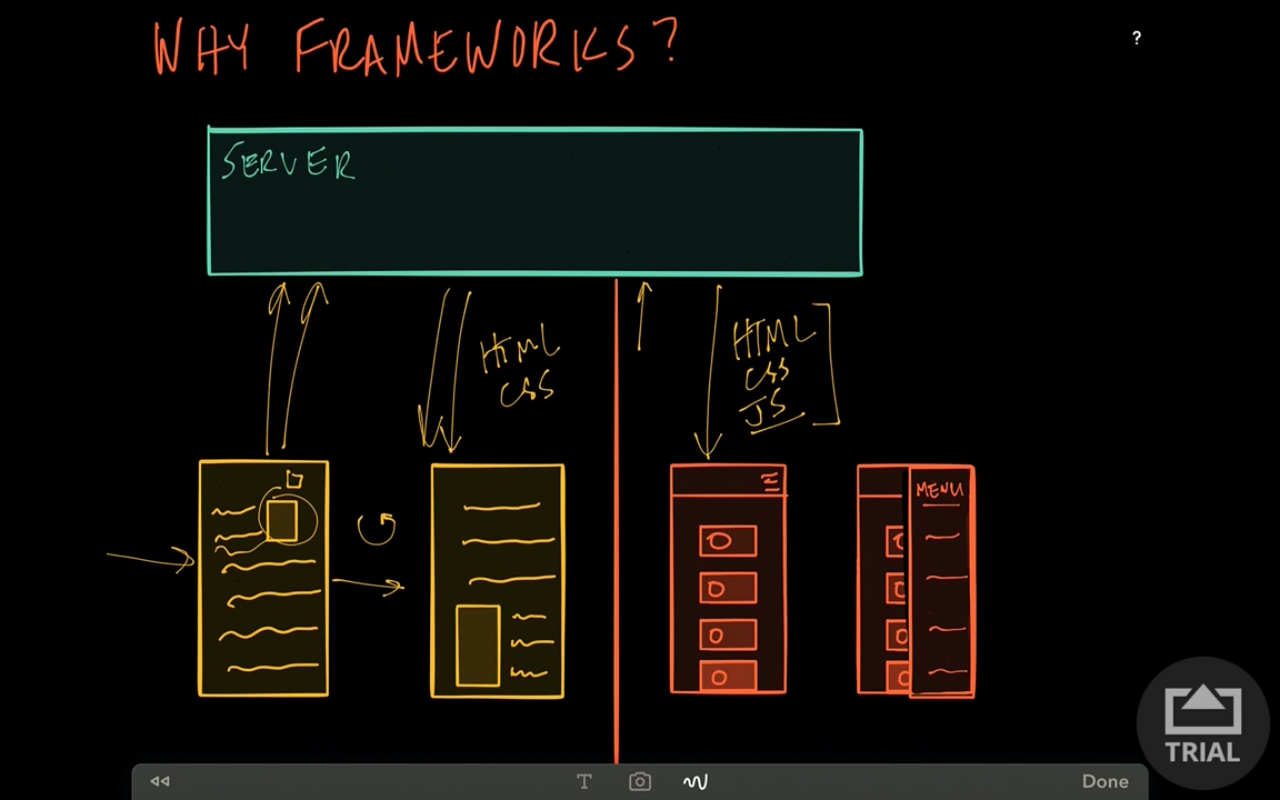 WHY FRAMEWORKS?
?
SERVER
HTML
CSS
HTML
CSS
JS
MENU
TRIAL
T
Done